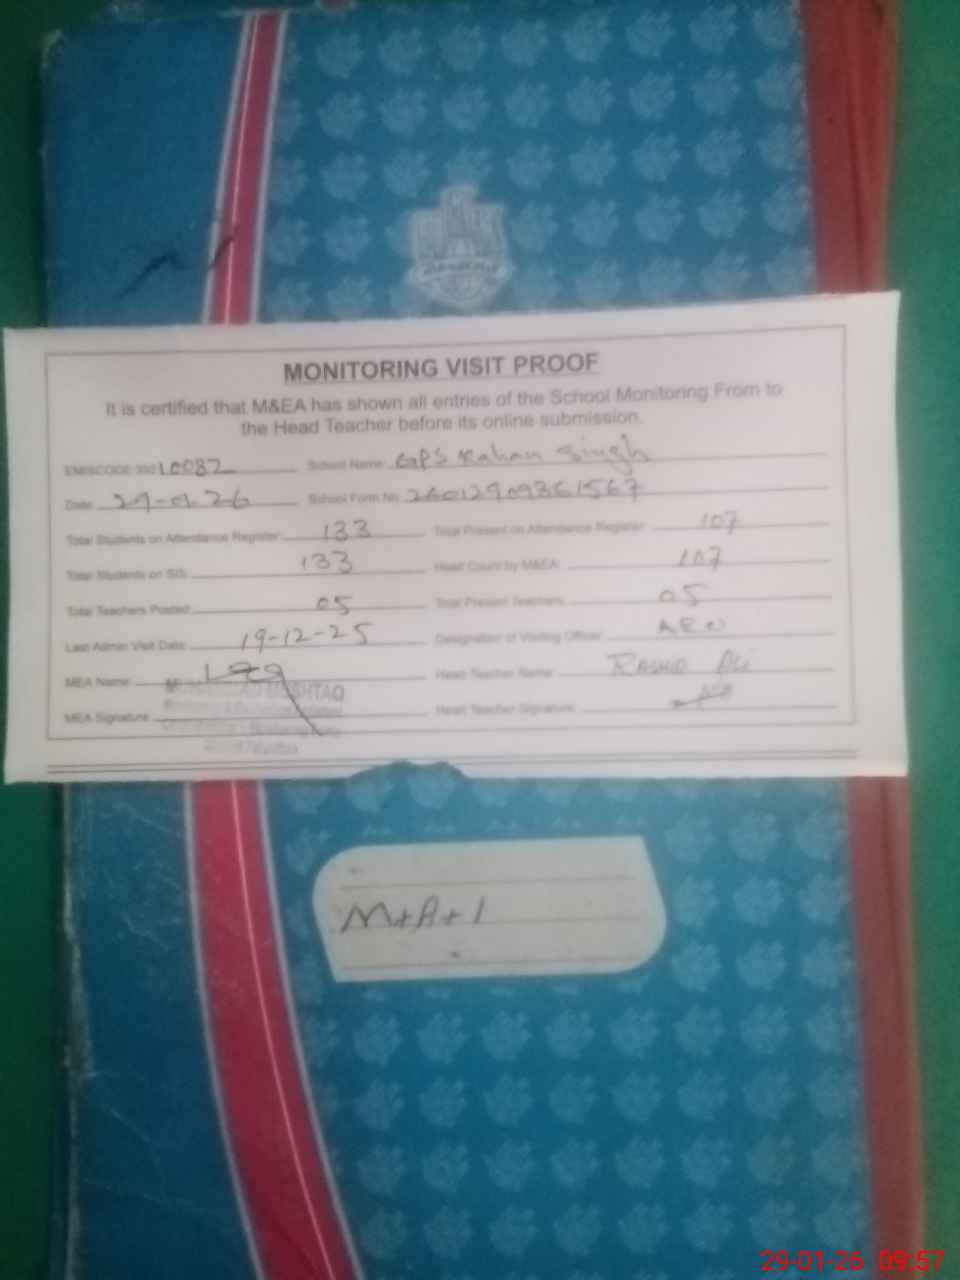 MONITORING VISIT PROOF
It is certified that M&EA has shown all entries of the School Monitoring From to
the Head Teacher before its online submission.
EMISCODE 350 10082 School Name: GPS Kahan Singh
Date: 29-01-26 School Form No:
Total Students on Attendance Register: 133 Total Present on Attendance Register: 107
Total Students on SIS: 133 Head Count by M&EA: 107
Total Teachers Posted: 05 Total Present Teachers: 05
Last Admin Visit Date: 19-12-25 Designation of Visiting Officer: AEO
MEA Name: Head Teacher Name: RASHID Ali
MUSHTAQ
MEA Signature: Head Teacher Signature:
M+A+1
29-01-26 09:57